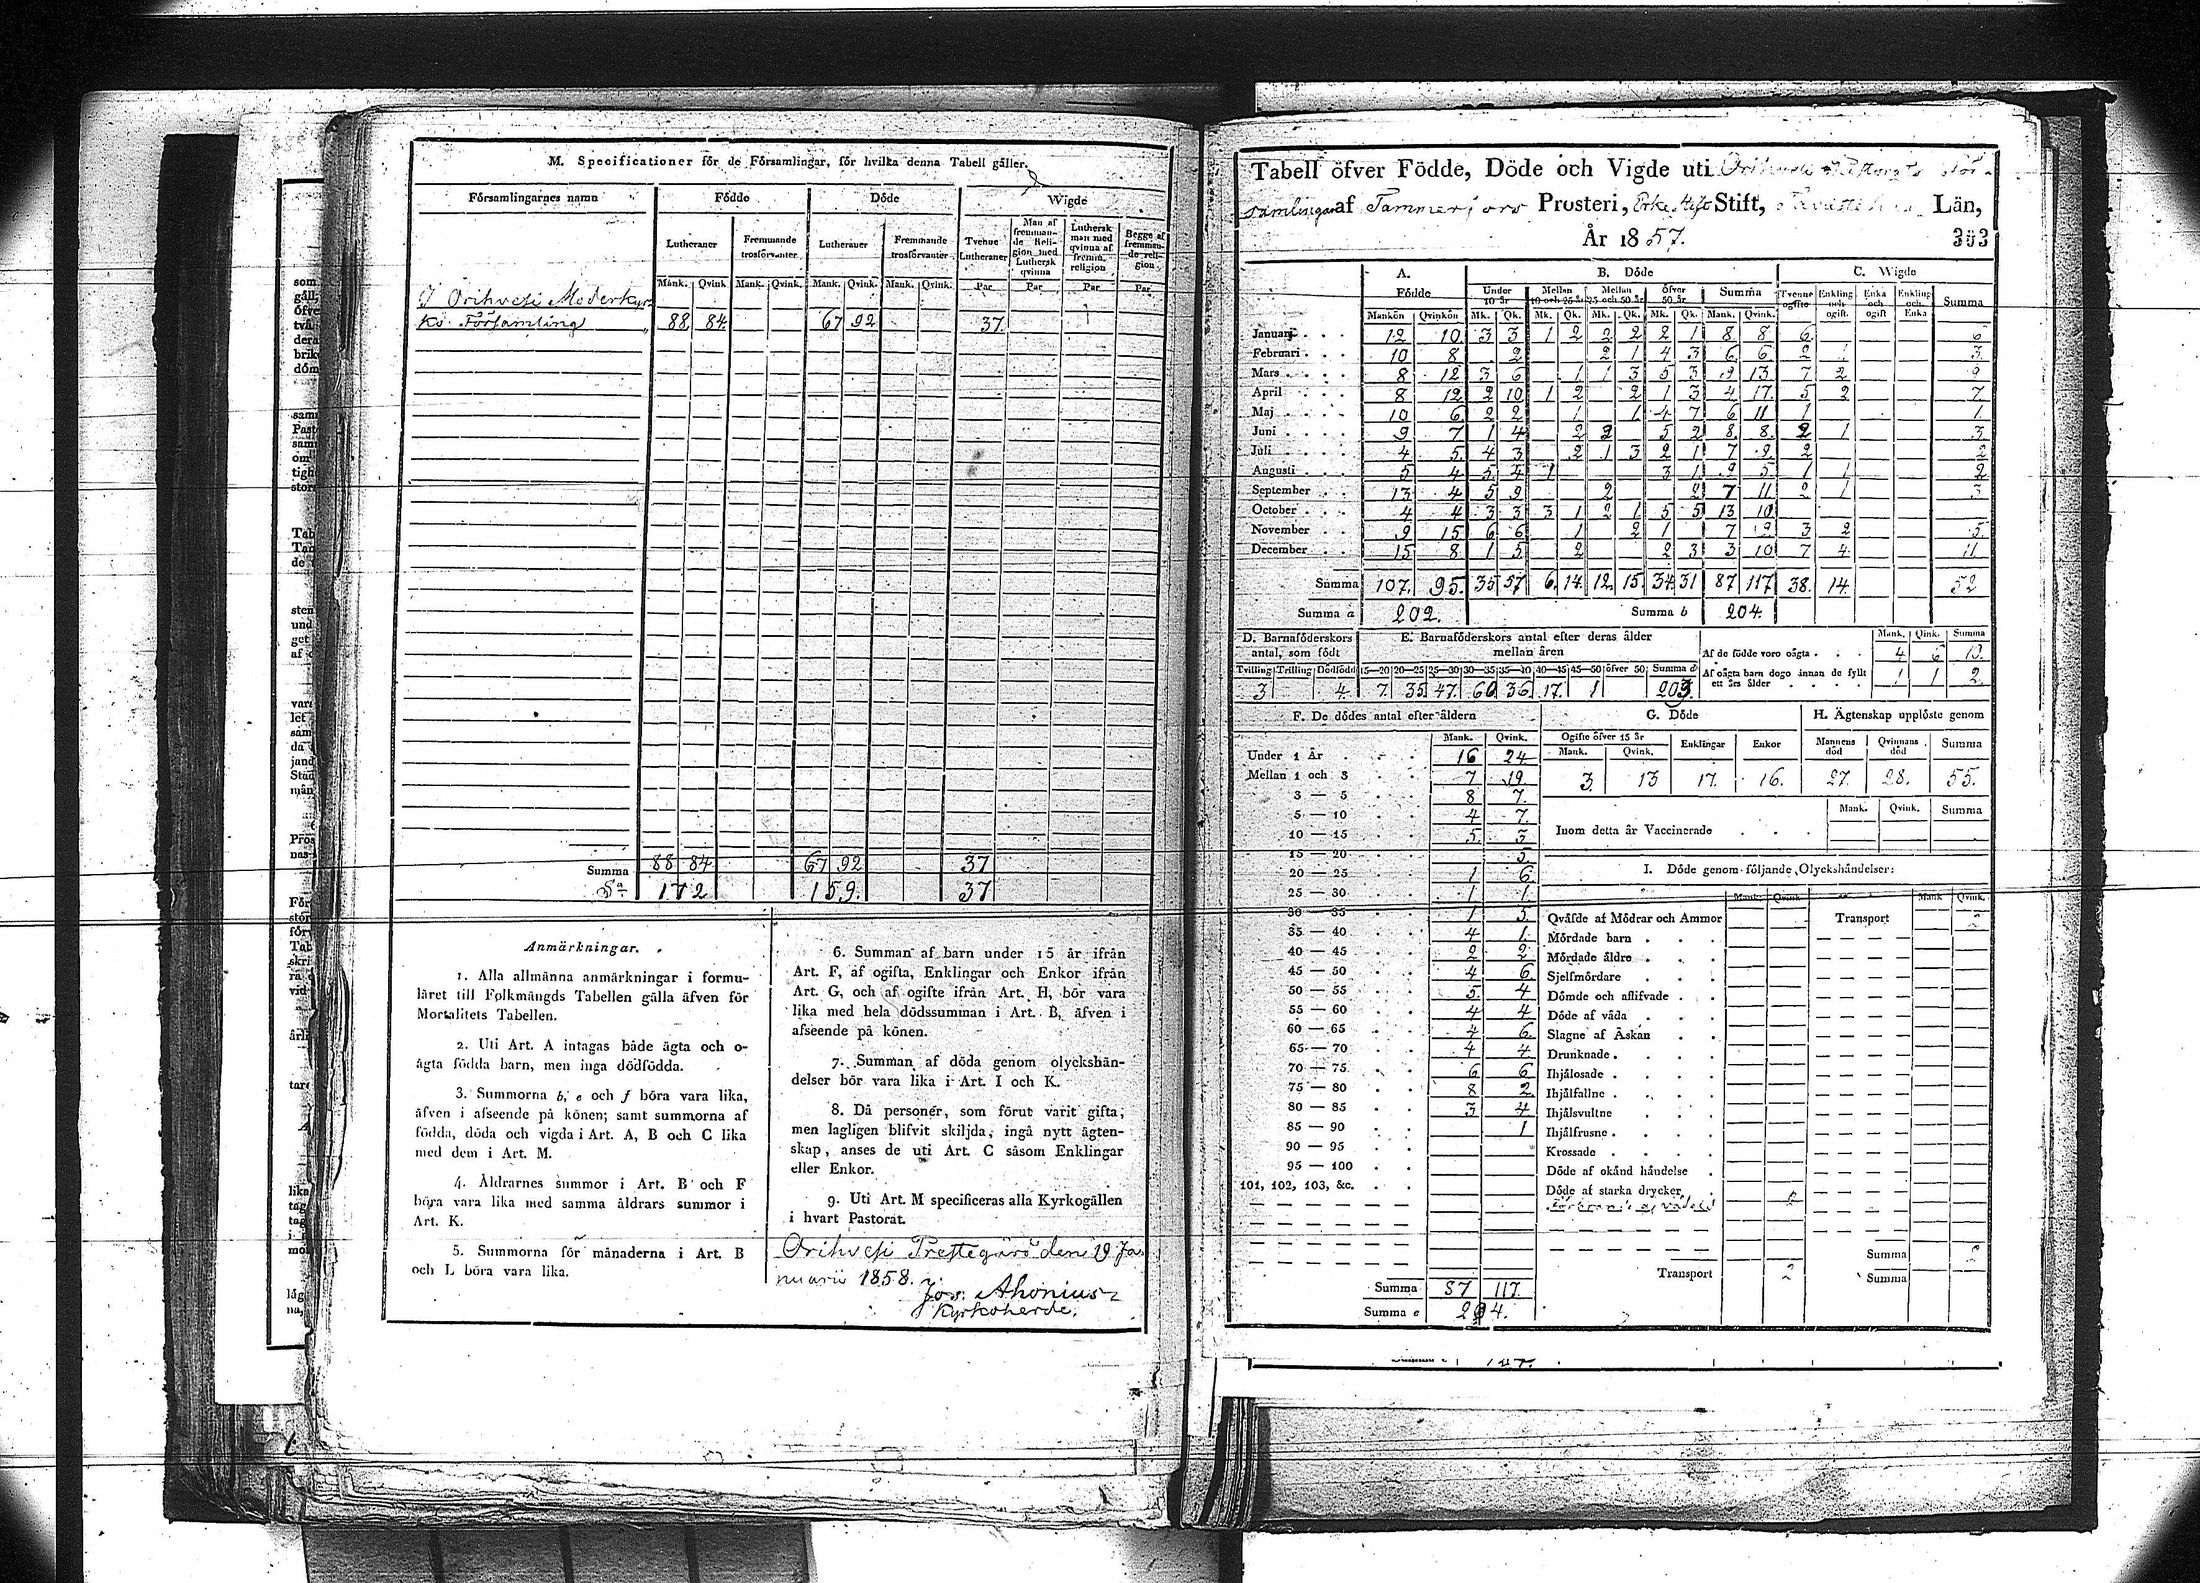 M. Specificationer för de Församlingar, för hvilka denna Tabell gäller.
Församlingarnes namn Födde Döde Wigde
Lutheraner Fremmande trosförvanter Lutheraner Fremmande trosförvanter Tvenne Lutheraner Man af fremmande Religion med Luthersk qvinna Luthersk man med qvinna af fremm. religion Begge af fremmande religion
Mank. Qvink. Mank. Qvink. Mank. Qvink. Mank. Qvink. Par Par Par Par
I Orihvesi Moderkyr-
ko Församling 88 84 67 92 37
Summa 88 84 67 92 37
Sa 172 159. 37
Anmärkningar.
1. Alla allmänna anmärkningar i formu-
läret till Folkmängds Tabellen gälla äfven för
Mortalitets Tabellen.
2. Uti Art. A intagas både ägta och o-
ägta födda barn, men inga dödfödda.
3. Summorna b, e och f böra vara lika,
äfven i afseende på könen; samt summorna af
födda, döda och vigda i Art. A, B och C lika
med dem i Art. M.
4. Åldrarnes summor i Art. B och F
böra vara lika med samma åldrars summor i
Art. K.
5. Summorna för månaderna i Art. B
och L böra vara lika.
6. Summan af barn under 15 år ifrån
Art. F, af ogifta, Enklingar och Enkor ifrån
Art. G, och af ogifte ifrån Art. H, bör vara
lika med hela dödssumman i Art. B, äfven i
afseende på könen.
7. Summan af döda genom olyckshän-
delser bör vara lika i Art. I och K.
8. Då personer, som förut varit gifta,
men lagligen blifvit skiljda, ingå nytt ägten-
skap, anses de uti Art. C såsom Enklingar
eller Enkor.
9. Uti Art. M specificeras alla Kyrkogällen
i hvart Pastorat.
Orihvesi Prestegård den 19 Ja-
nuarii 1858.
Jos: Ahonius
Kyrkoherde.
Tabell öfver Födde, Döde och Vigde uti Orihvesi Pastorats för-
samlingar af Tammerfors Prosteri, Erke Stift, Län,
År 1857. 353
A. B. Döde C. Wigde
Födde Under 10 år Mellan 10 och 25 år Mellan 25 och 50 år Öfver 50 år Summa Tvenne ogifte Enkling och ogift. Enka och ogift Enkling och Enka Summa
Mankön Qvinkön Mk. Qk. Mk. Qk. Mk. Qk. Mk. Qk. Mank. Qvink.
Januari 12 10 3 3 1 2 2 2 2 1 8 8 6 6
Februari 10 8 2 2 1 4 3 6 6 2 1 3
Mars 8 12 3 6 1 1 3 5 3 9 13 7 2 9
April 8 12 2 10 1 2 2 1 3 4 17 5 2 7
Maj 10 6 2 2 1 1 4 7 6 11 1 1
Juni 9 7 1 4 2 2 5 2 8 8 2 1 3
Juli 4 5 4 3 2 1 3 2 1 7 9 2 2
Augusti 5 4 5 4 1 3 1 9 5 1 1 2
September 13 4 5 9 2 2 7 11 2 1 3
October 4 4 3 3 3 1 2 1 5 5 13 10
November 9 15 6 6 1 2 1 7 9 3 2 5
December 15 8 1 5 2 2 3 3 10 7 4 11
Summa 107. 95. 35 57 6 14 12 15 34 31 87 117 38. 14. 52
Summa a 202. Summa b 204.
D. Barnaföderskors antal, som födt
Tvilling Trilling Dödfödd
3 4
E. Barnaföderskors antal efter deras ålder
mellan åren
15—20 20—25 25—30 30—35 35—40 40—45 45—50 öfver 50 Summa d
7 35 47 60 36 17. 1 203.
Mank. Qink. Summa
Af de födde voro oägta 4 6 10.
Af oägta barn dogo innan de fyllt
ett års ålder 1 1 2.
F. De dödes antal efter åldern
Mank. Qvink.
Under 1 År 16 24
Mellan 1 och 3 7 19
3 — 5 8 7
5 — 10 4 7
10 — 15 5 3
15 — 20 5
20 — 25 1 6
25 — 30 1 1
30 — 35 1 5
35 — 40 4 1
40 — 45 2 2
45 — 50 4 6
50 — 55 5 4
55 — 60 4 4
60 — 65 4 6
65 — 70 4 4
70 — 75 6 6
75 — 80 8 2
80 — 85 3 4
85 — 90 1
90 — 95
95 — 100
101, 102, 103, &c.
Summa 87 117.
Summa e 204.
G. Döde
Ogifte öfver 15 år Enklingar Enkor
Mank. Qvink.
3. 13 17. 16.
H. Ägtenskap upplöste genom
Mannens död Qvinnans död Summa
27 28. 55.
Mank. Qvink. Summa
Inom detta år Vaccinerade
I. Döde genom följande Olyckshändelser:
Mank. Qvink. Mank Qvink.
Qväfde af Mödrar och Ammor Transport 2
Mördade barn
Mördade äldre
Sjelfmördare
Dömde och aflifvade
Döde af våda
Slagne af Åskan
Drunknade
Ihjälosade
Ihjälfallne
Ihjälsvultne
Ihjälfrusne
Krossade
Döde af okänd händelse
Döde af starka drycker
af vådeld 2
Transport 2
Summa 2
Summa